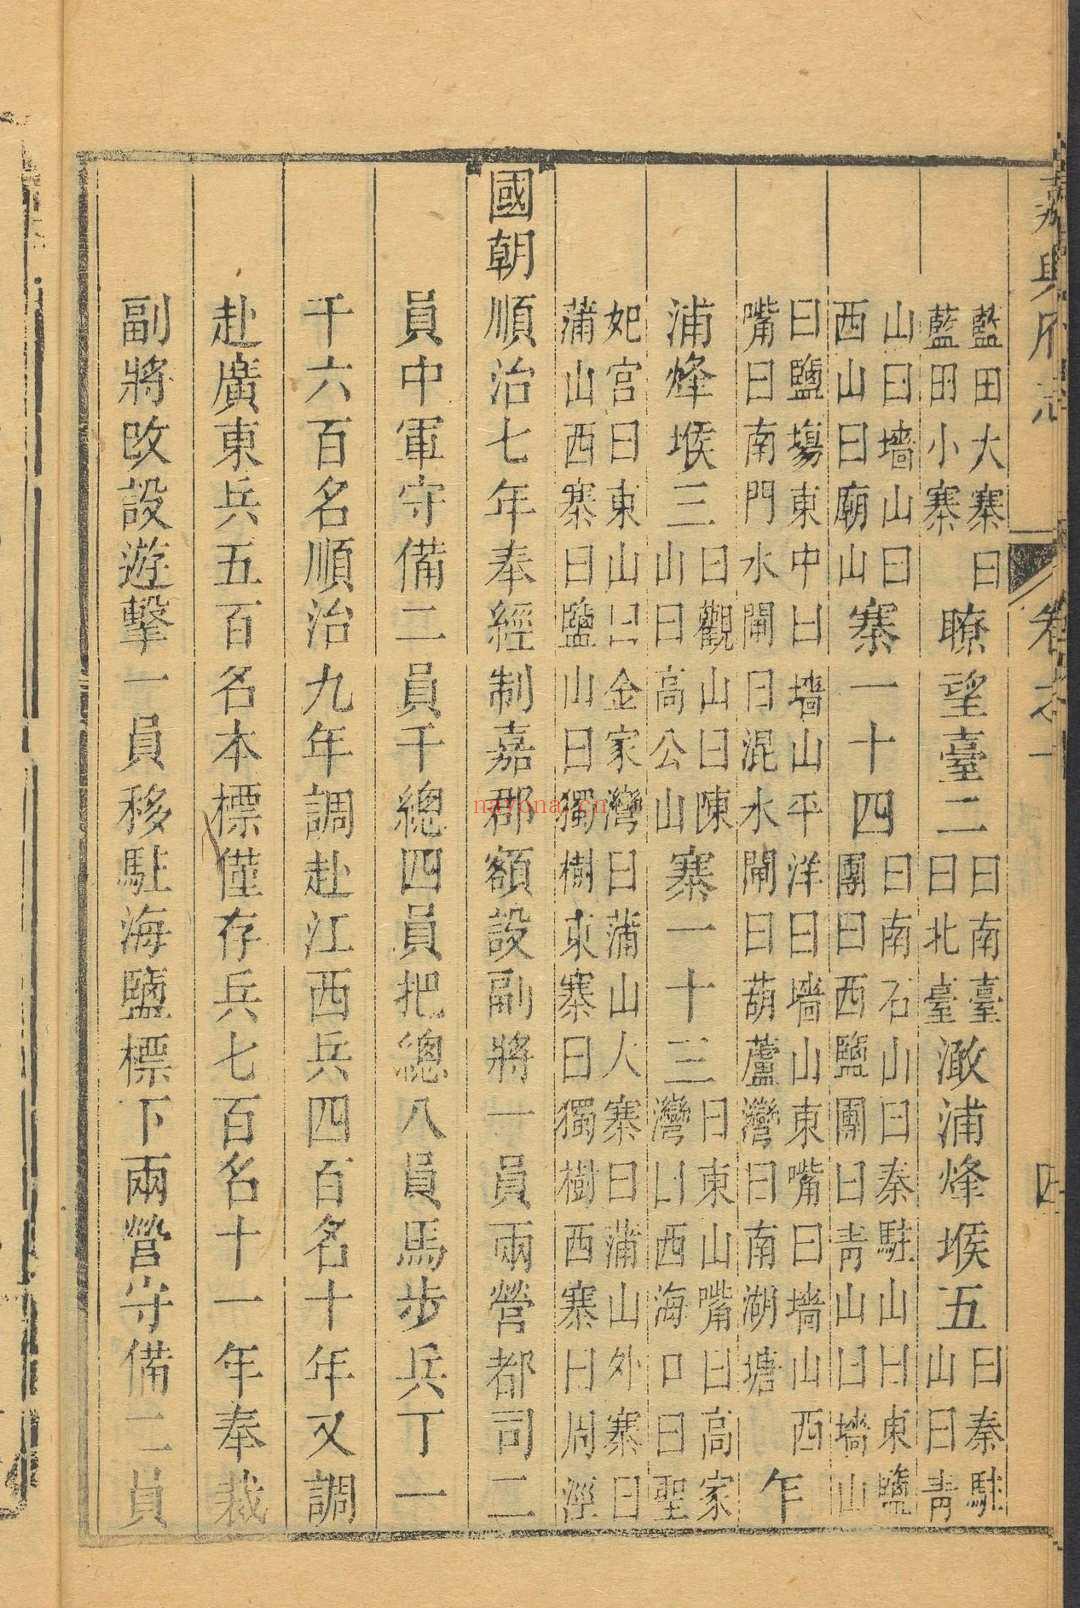 嘉興府志 卷之十 四
藍田大寨曰藍田小寨瞭望臺二曰南臺曰北臺澉浦烽堠五曰秦駐山曰青
山曰墻山曰西山曰廟山寨一十四曰南石山曰秦駐山曰東鹽團曰西鹽團曰青山曰墻山
曰鹽塲東中曰墻山平洋曰墻山東嘴曰墻山西嘴曰南門水閘曰混水閘曰葫蘆灣曰南湖塘乍
浦烽堠三曰觀山曰陳山曰高公山寨一十三曰東山嘴曰高家灣曰西海口曰聖
妃宮曰東山曰金家灣曰蒲山人寨曰蒲山外寨曰蒲山西寨曰鹽山曰獨樹東寨曰獨樹西寨曰周涇
國朝順治七年奉經制嘉郡額設副將一員兩營都司二
員中軍守備二員千總四員把總八員馬步兵丁一
千六百名順治九年調赴江西兵四百名十年又調
赴廣東兵五百名本標僅存兵七百名十一年奉裁
副將改設遊擊一員移駐海鹽標下兩營守備二員
nayona.cn